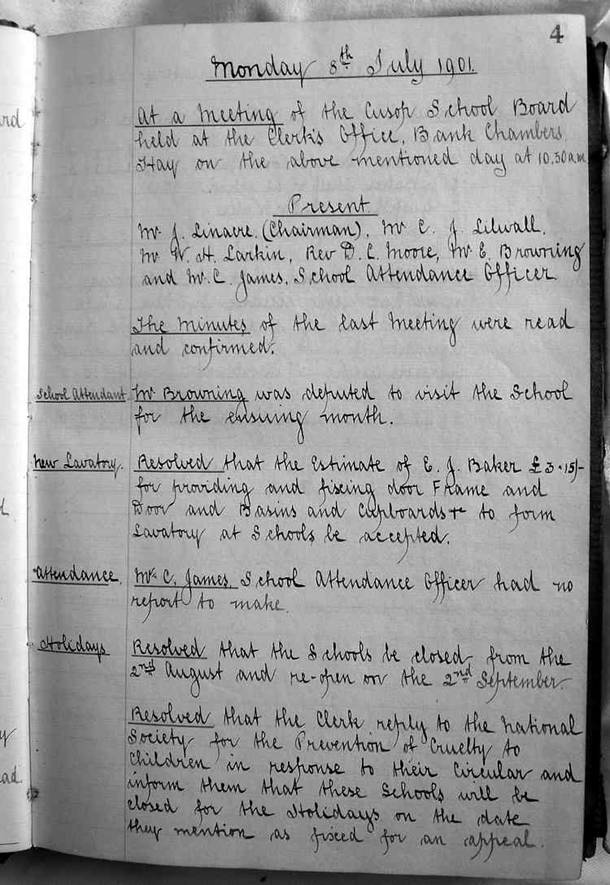 4
Monday 8th July 1901.
At a Meeting of the Cusop School Board
held at the Clerk's Office, Bank Chambers
Hay on the above mentioned day at 10.30am
Present
Mr J. (Chairman), Mr C. J. Lilwall.
Mr W. H. Larkin, Rev D. C. Moore, Mr E. Browning
and Mr C. James, School Attendance Officer
The minutes of the last Meeting were read
and confirmed.
School Attendant
Mr Browning was deputed to visit the School
for the ensuing month.
New Lavatory.
Resolved that the Estimate of E. J. Baker £3.15/-
for providing and fixing door Frame and
Door and Basins and Cupboards to form
Lavatory at Schools be accepted.
Attendance
Mr C. James School Attendance Officer had no
report to make.
Holidays
Resolved that the Schools be closed from the
2nd August and re-open on the 2nd September.
Resolved that the Clerk reply to the National
Society for the Prevention of Cruelty to
Children in response to their Circular and
inform them that these Schools will be
closed for the Holidays on the date
they mention as fixed for an appeal.